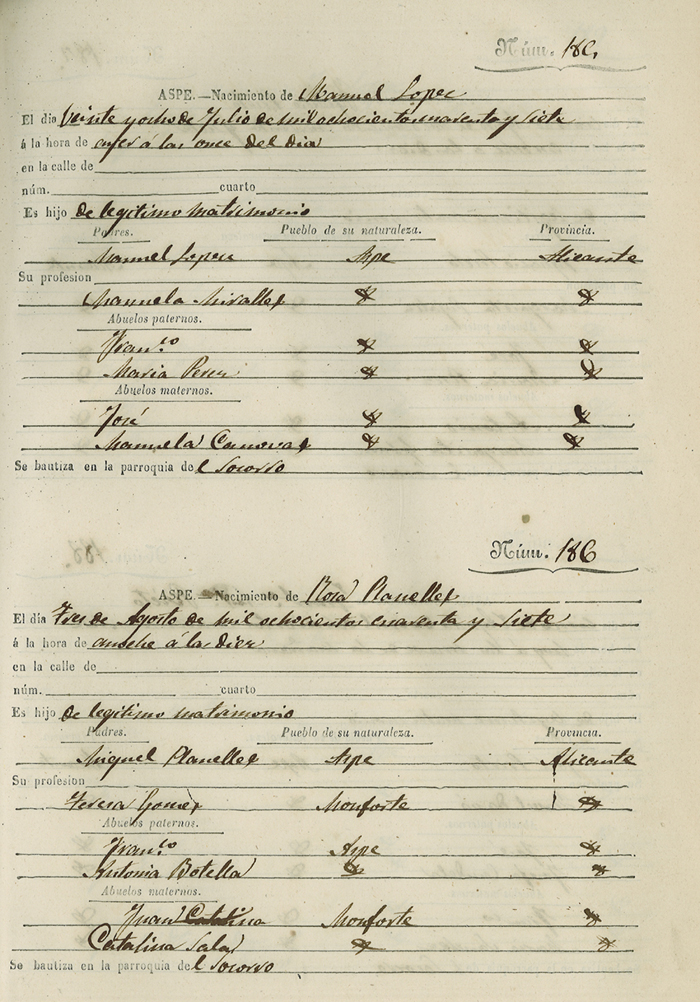 Núm. 18
ASPE.—Nacimiento de Manuel Lopez
El dia veinte y ocho de Julio de mil ochocientos cuarenta y siete
á la hora de ayer á las once del dia
en la calle de
núm. cuarto
Es hijo de legitimo matrimonio
Padres. Pueblo de su naturaleza. Provincia.
Manuel Lopez Aspe Alicante
Su profesion
Manuela Miralles
Abuelos paternos.
Fran.co
Maria Perez
Abuelos maternos.
José
Manuela Canovas
Se bautiza en la parroquia del Socorro
Núm. 186
ASPE.—Nacimiento de Rosa Planelles
El dia tres de Agosto de mil ochocientos cuarenta y siete
á la hora de anoche á las diez
en la calle de
núm. cuarto
Es hijo de legitimo matrimonio
Padres. Pueblo de su naturaleza. Provincia.
Miguel Planelles Aspe Alicante
Su profesion
Teresa Gomez Monforte
Abuelos paternos.
Fran.co Aspe
Antonia Botella
Abuelos maternos.
Juan Catalina Monforte
Catalina Sala
Se bautiza en la parroquia del Socorro